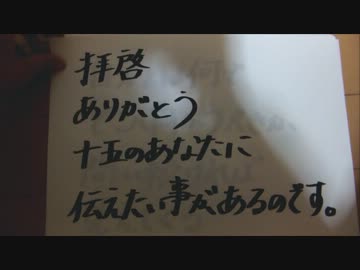 拝啓
ありがとう
十五のあなたに
伝えたい事があるのです。